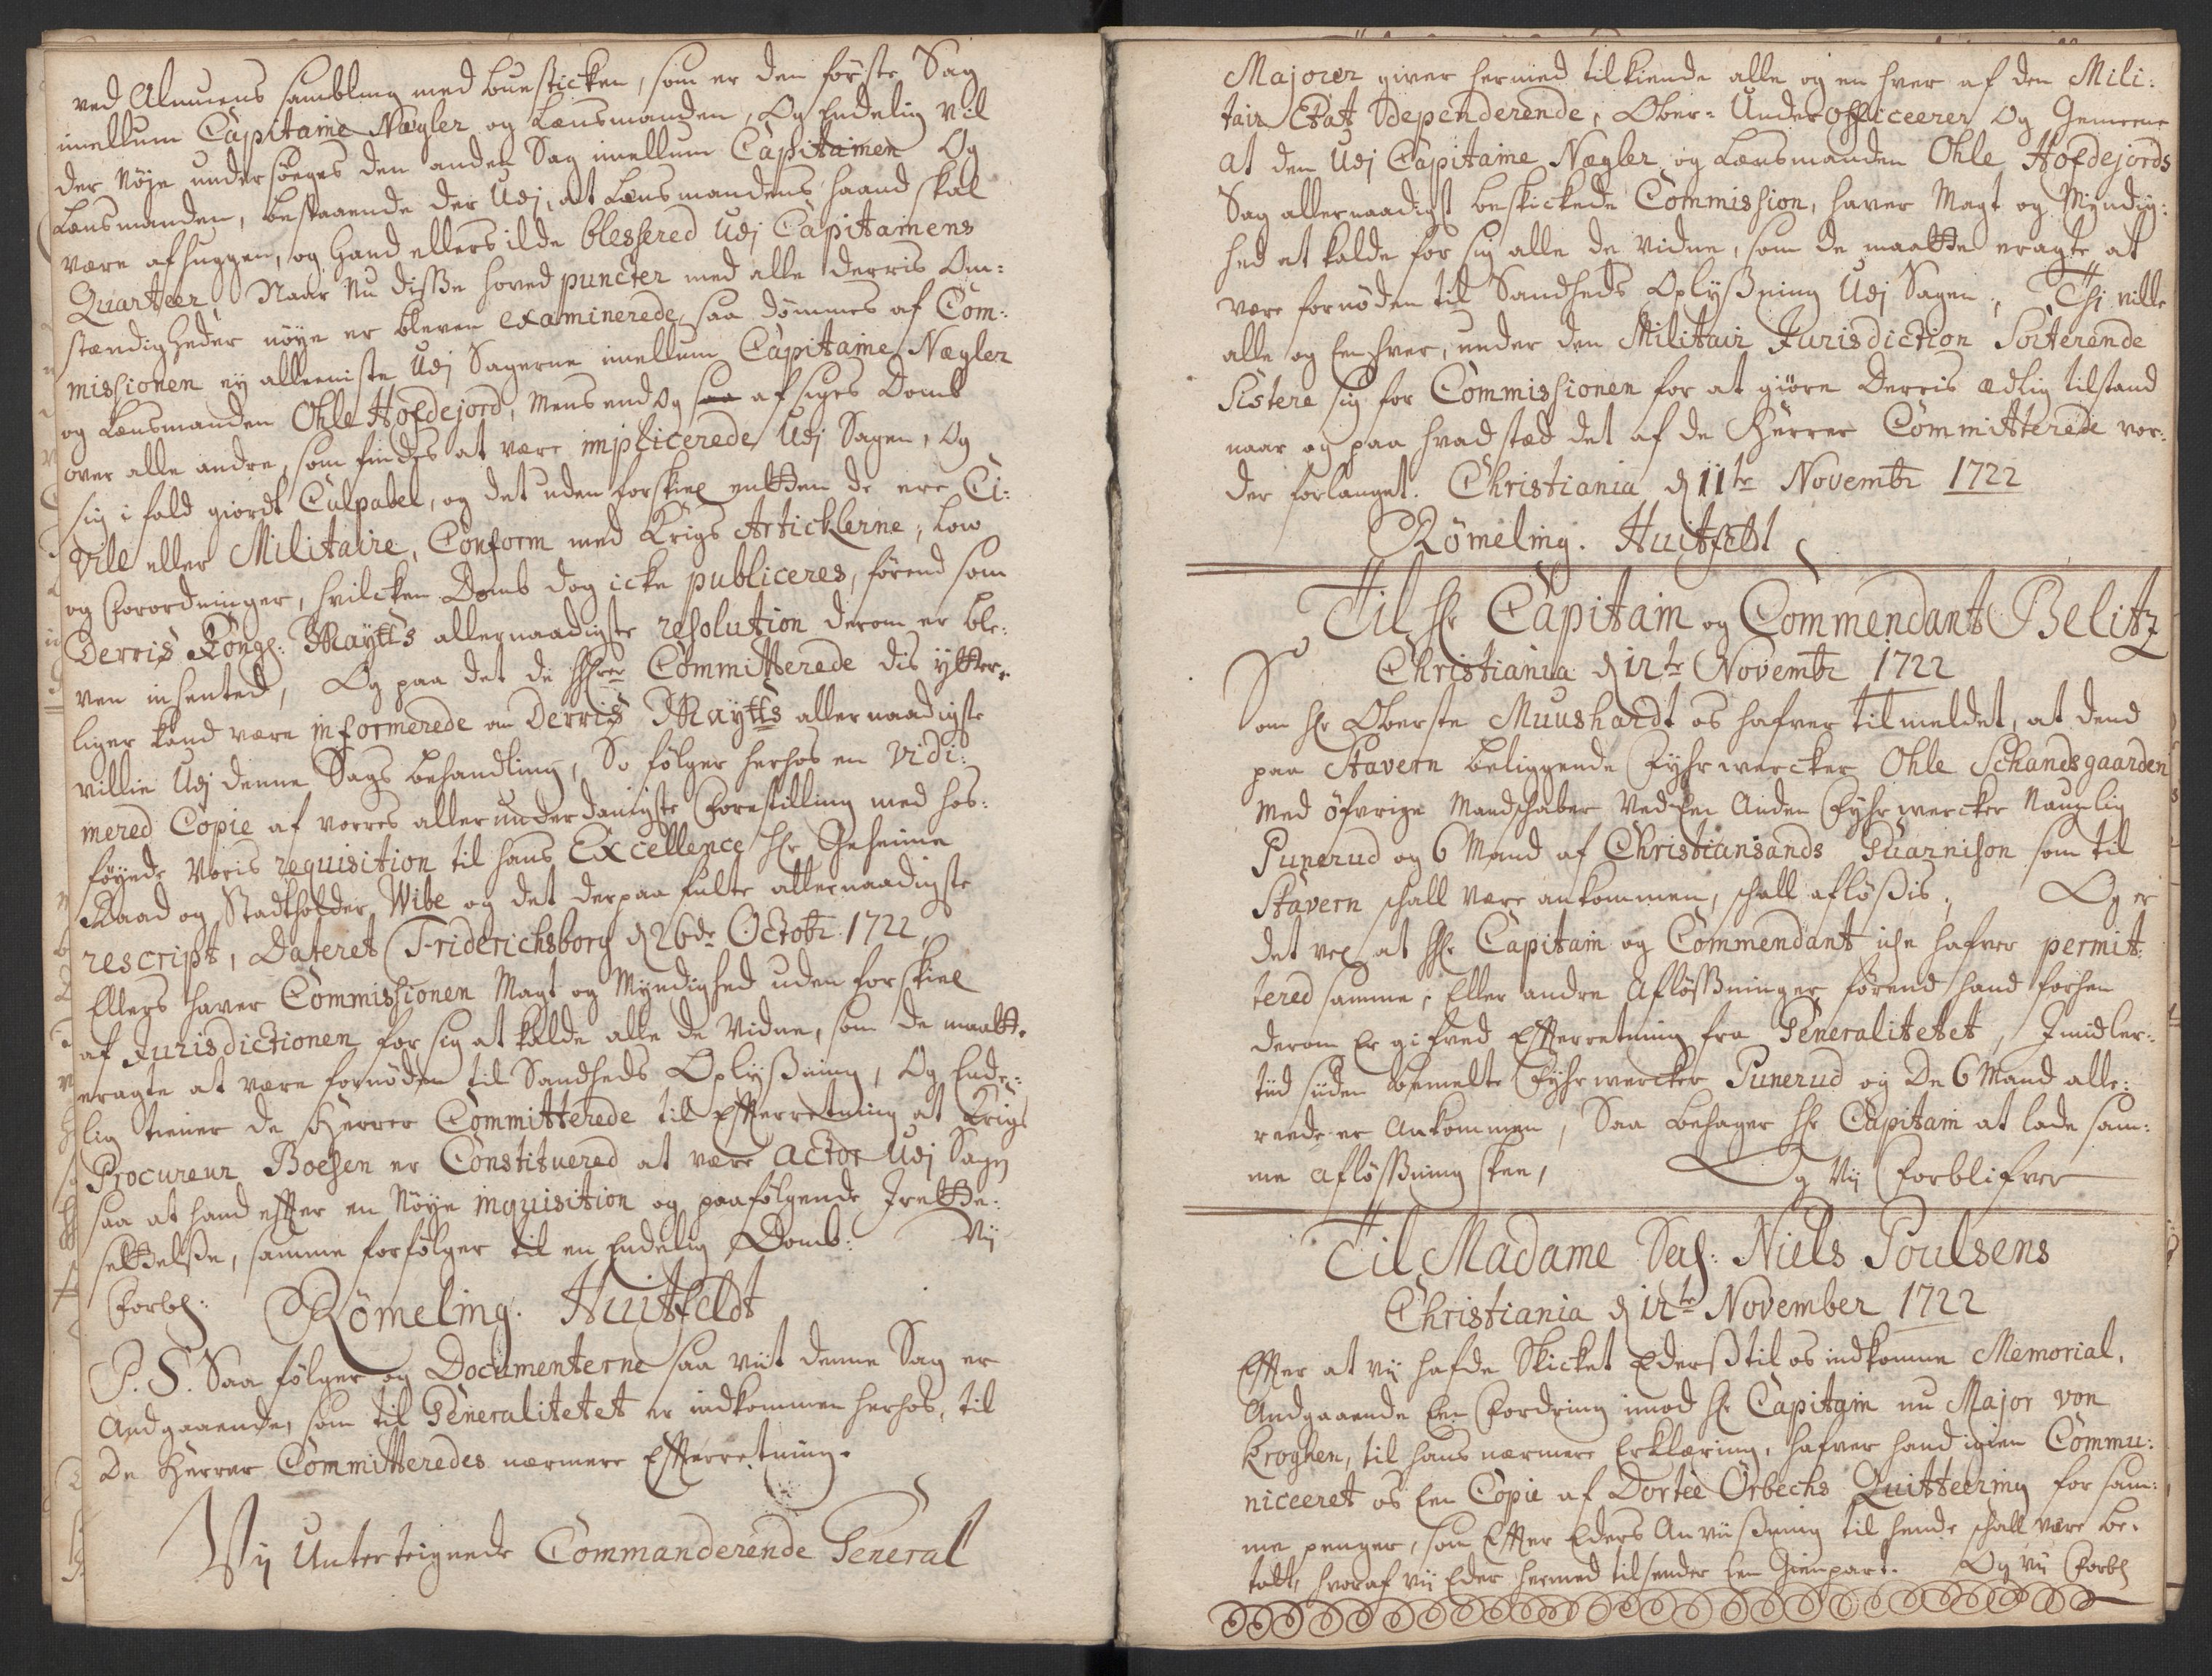 ved Almuens sambling med budsticken, som er den første Sag
imellum Capitaine Nægler og Lænsmanden, Og Endelig vil
der Nøje undersøeges den anden Sag imellum Capitainen Og
Lænsmanden, bestaaende der Udj, at Lænsmandens haand skal
være afhuggen, og Hand ellers ilde blessered Udj Capitainens
Quarteer. Naar Nu disse hoved puncter med alle Derris Om:
stændigheder nöye er bleven examinerede, saa dømmes af Com:
missionen ey alleeniste Udj Sagerne imellum Capitaine Nægler
og Lænsmanden Ohle Hofdejord, Mens end og saa afsiges Domb
over alle andre, som findes at være implicerede Udj Sagen, Og
sig i fald giordt Culpabel, og det uden forskiel enten de ere Ci:
vile eller Militaire, Conform med Krigs Articklerne, Low
og Forordninger, hvilcken Domb dog icke publiceres, førend som
Derris Kongl: Maytts allernaadigste resolution derom er ble:
ven insented, Og paa det de Hrer Committerede dis ytter:
liger kand være informerede om Derris Maytts allernaadigste
villie Udj denne Sags behandling, So følger herhos en vidi:
mered Copie af vorres allerunderdanigste Forestilling med hos:
føyede Voris requisition til hans Excellence Hr Geheime
Raad og Stadtholder Wibe og det derpaa fulte allernaadigste
rescript, Dateret Friderichsborg d 26de Octobr 1722,
Ellers haver Commissionen Magt og Myndighed uden forskiel
af Jurisdictionen for sig at kalde alle de Vidne, som de maatte
eragte at være fornöden til Sandheds Oplysning, Og Ende:
lig tiener de Herrer Committerede til Efterretning at Krigs
Procureur Boesen er Constituered at være Actor Udj Sagen
saa at hand efter en Nöye inquisition og paafølgende Irette:
settelse, samme forfølger til en Endelig Domb: Vij
Forbl: Römeling. Huitfeldt
P. S. Saa følger og Documenterne saa viit denne Sag er
Andgaaende, som til Generalitetet er indkommen herhos, til
De Herrer Committeredes nærmere Efterretning.
Vij Unterteignede Commanderende General
Majorer giver hermed tilkiende alle og en hver af den Mili:
tair Etat Dependerende, Ober- Under Officeerer Og Gemeene
at den Udj Capitaine Nægler og Lænsmanden Ohle Hofdejords
Sag allernaadigst beskickede Commission, haver Magt og Myndig:
hed at kalde for sig alle de Vidne, som de maatte eragte at
være fornöden til Sandheds Oplysning Udj Sagen, Thj ville
alle og Een hver, under den Militair Jurisdiction Sorterende
Sistere sig for Commissionen for at giöre Derris ædlig tilstand
naar og paa hvad stæd det af de Herrer Committerede vor:
der forlanget. Christiania d 11te Novembr 1722
Römeling. Huitfeldt
Til Hr Capitain og Commendant Belitz
Christiania d 12te Novembr 1722
Som Hr Oberste Muushardt os hafver tilmeldet, at dend
paa Stavern beliggende Fyhrwercker Ohle Schandsgaarden
Med öfvrige Mandskaber Ved Een Anden Fyhrwercker Naunlig
Punerud og 6 Mand af Christiansands Guarnison som til
Stavern schall være ankommen, schall aflösis, Og er
det vel at Hr Capitain og Commendant icke hafver permit:
tered samme, Eller andre Aflösninger førend hand forhen
derom Er gifved Efterretning fra Generalitetet, Jmidler:
tiid siiden bemelte Fyhrwercker Punerud og De 6 Mand alle:
reede er Ankommen, Saa behager Hr Capitain at lade sam:
me Aflösning skee, Og Vij Forblifver
Til Madame Sal: Niels Poulsens
Christiania d 12te November 1722
Efter at vij hafde Skicket Eders til os indkomne Memorial,
Andgaaende Een Fordring imod Hr Capitain nu Major von
Kroghen, til hans nærmere Erklæring, hafver hand igien Commu:
niceeret os Een Copie af Dortee Orbechs Quitteering for sam:
me penger, som Efter Eders Anviisning til hende schall være be:
talt, hvoraf vij Eder hermed tilsender Een Gienpart. Og vij Forbl